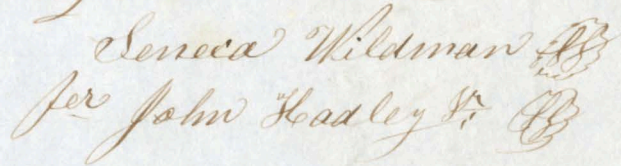 Seneca Wildman
per John Hadley Jr.